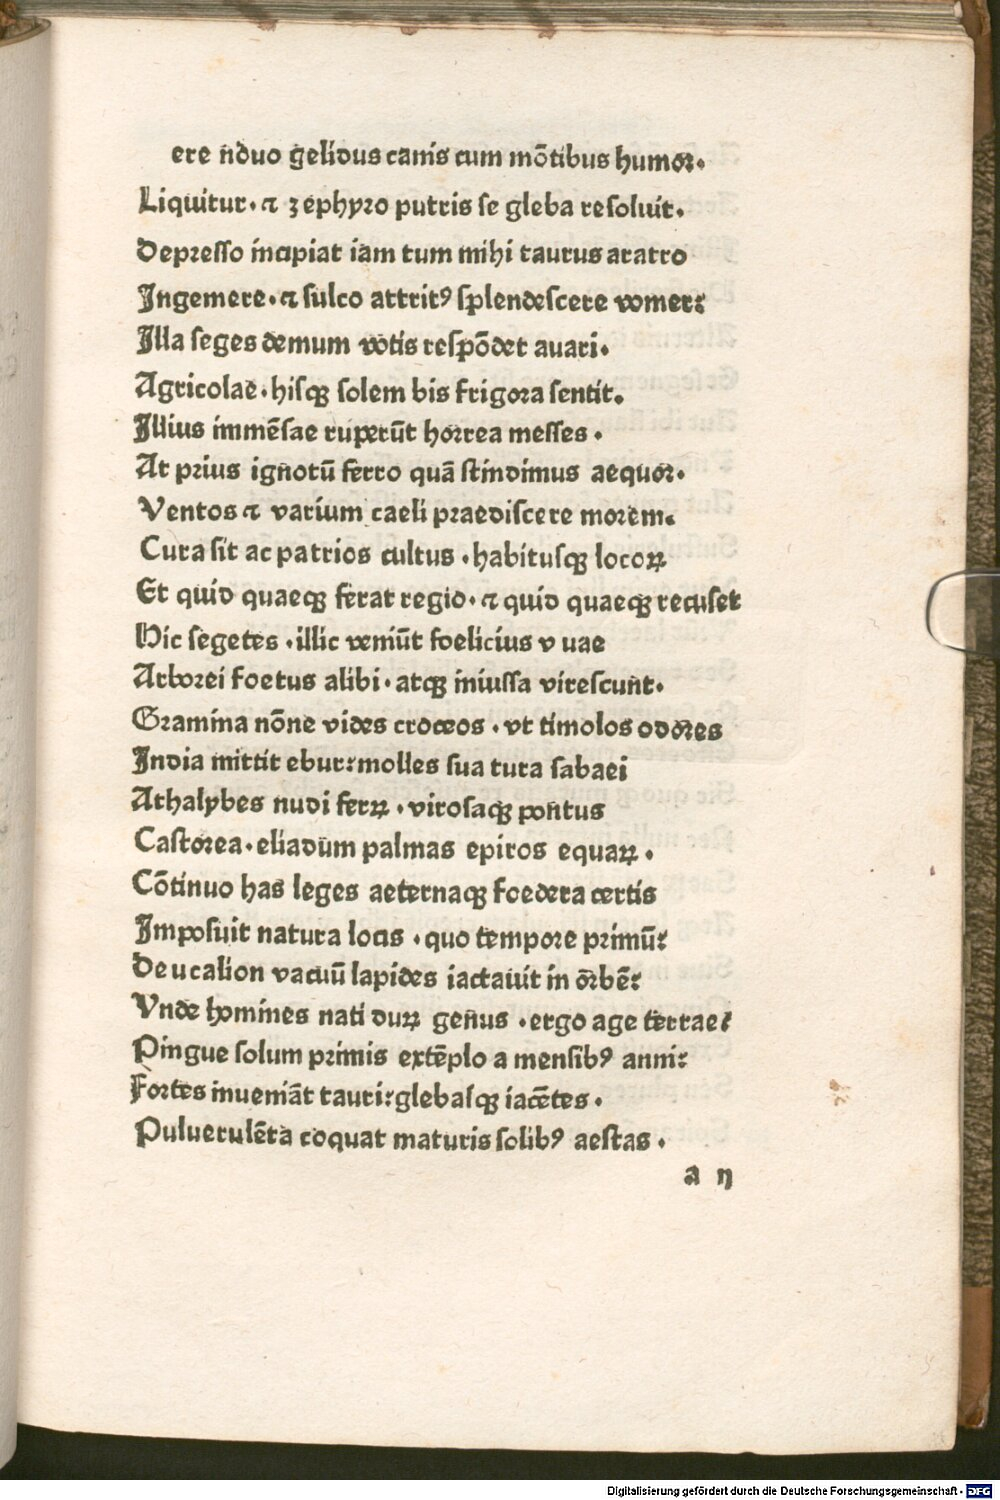 ere n̄duo gelidus canis cum mōtibus humor.
Liquitur. ⁊ zephyro putris se gleba resoluit.
Depresso incipiat iam tum mihi taurus aratro
Ingemere. ⁊ sulco attritꝰ splendescere vomer:
Illa seges demum votis respōdet auari.
Agricolae. hisqꝫ solem bis frigora sentit.
Illius immēsae ruperūt horrea messes.
At prius ignotū ferro quā stindimus aequor.
Ventos ⁊ varium caeli praediscere morem.
Cura sit ac patrios cultus. habitusqꝫ locoꝝ
Et quid quaeqꝫ ferat regio. ⁊ quid quaeqꝫ recuset
Hic segetes. illic veniūt foelicius v uae
Arborei foetus alibi. atqꝫ iniussa virescunt.
Gramina nōne vides croceos. vt timolos odores
India mittit ebur: molles sua tura sabaei
Athalybes nudi ferꝝ. virosaqꝫ pontus
Castorea. eliadum palmas epiros equaꝝ.
Cōtinuo has leges aeternaqꝫ foedera certis
Imposuit natura locis. quo tempore primū:
Deucalion vacuū lapides iactauit in orbē:
Vnde homines nati duꝝ genus. ergo age terrae:
Pingue solum primis extēplo a mensibꝰ anni:
Fortes inueniāt tauri: glebasqꝫ iacētes.
Puluerulēta coquat maturis solibꝰ aestas.
a ij
Digitalisierung gefördert durch die Deutsche Forschungsgemeinschaft - DFG